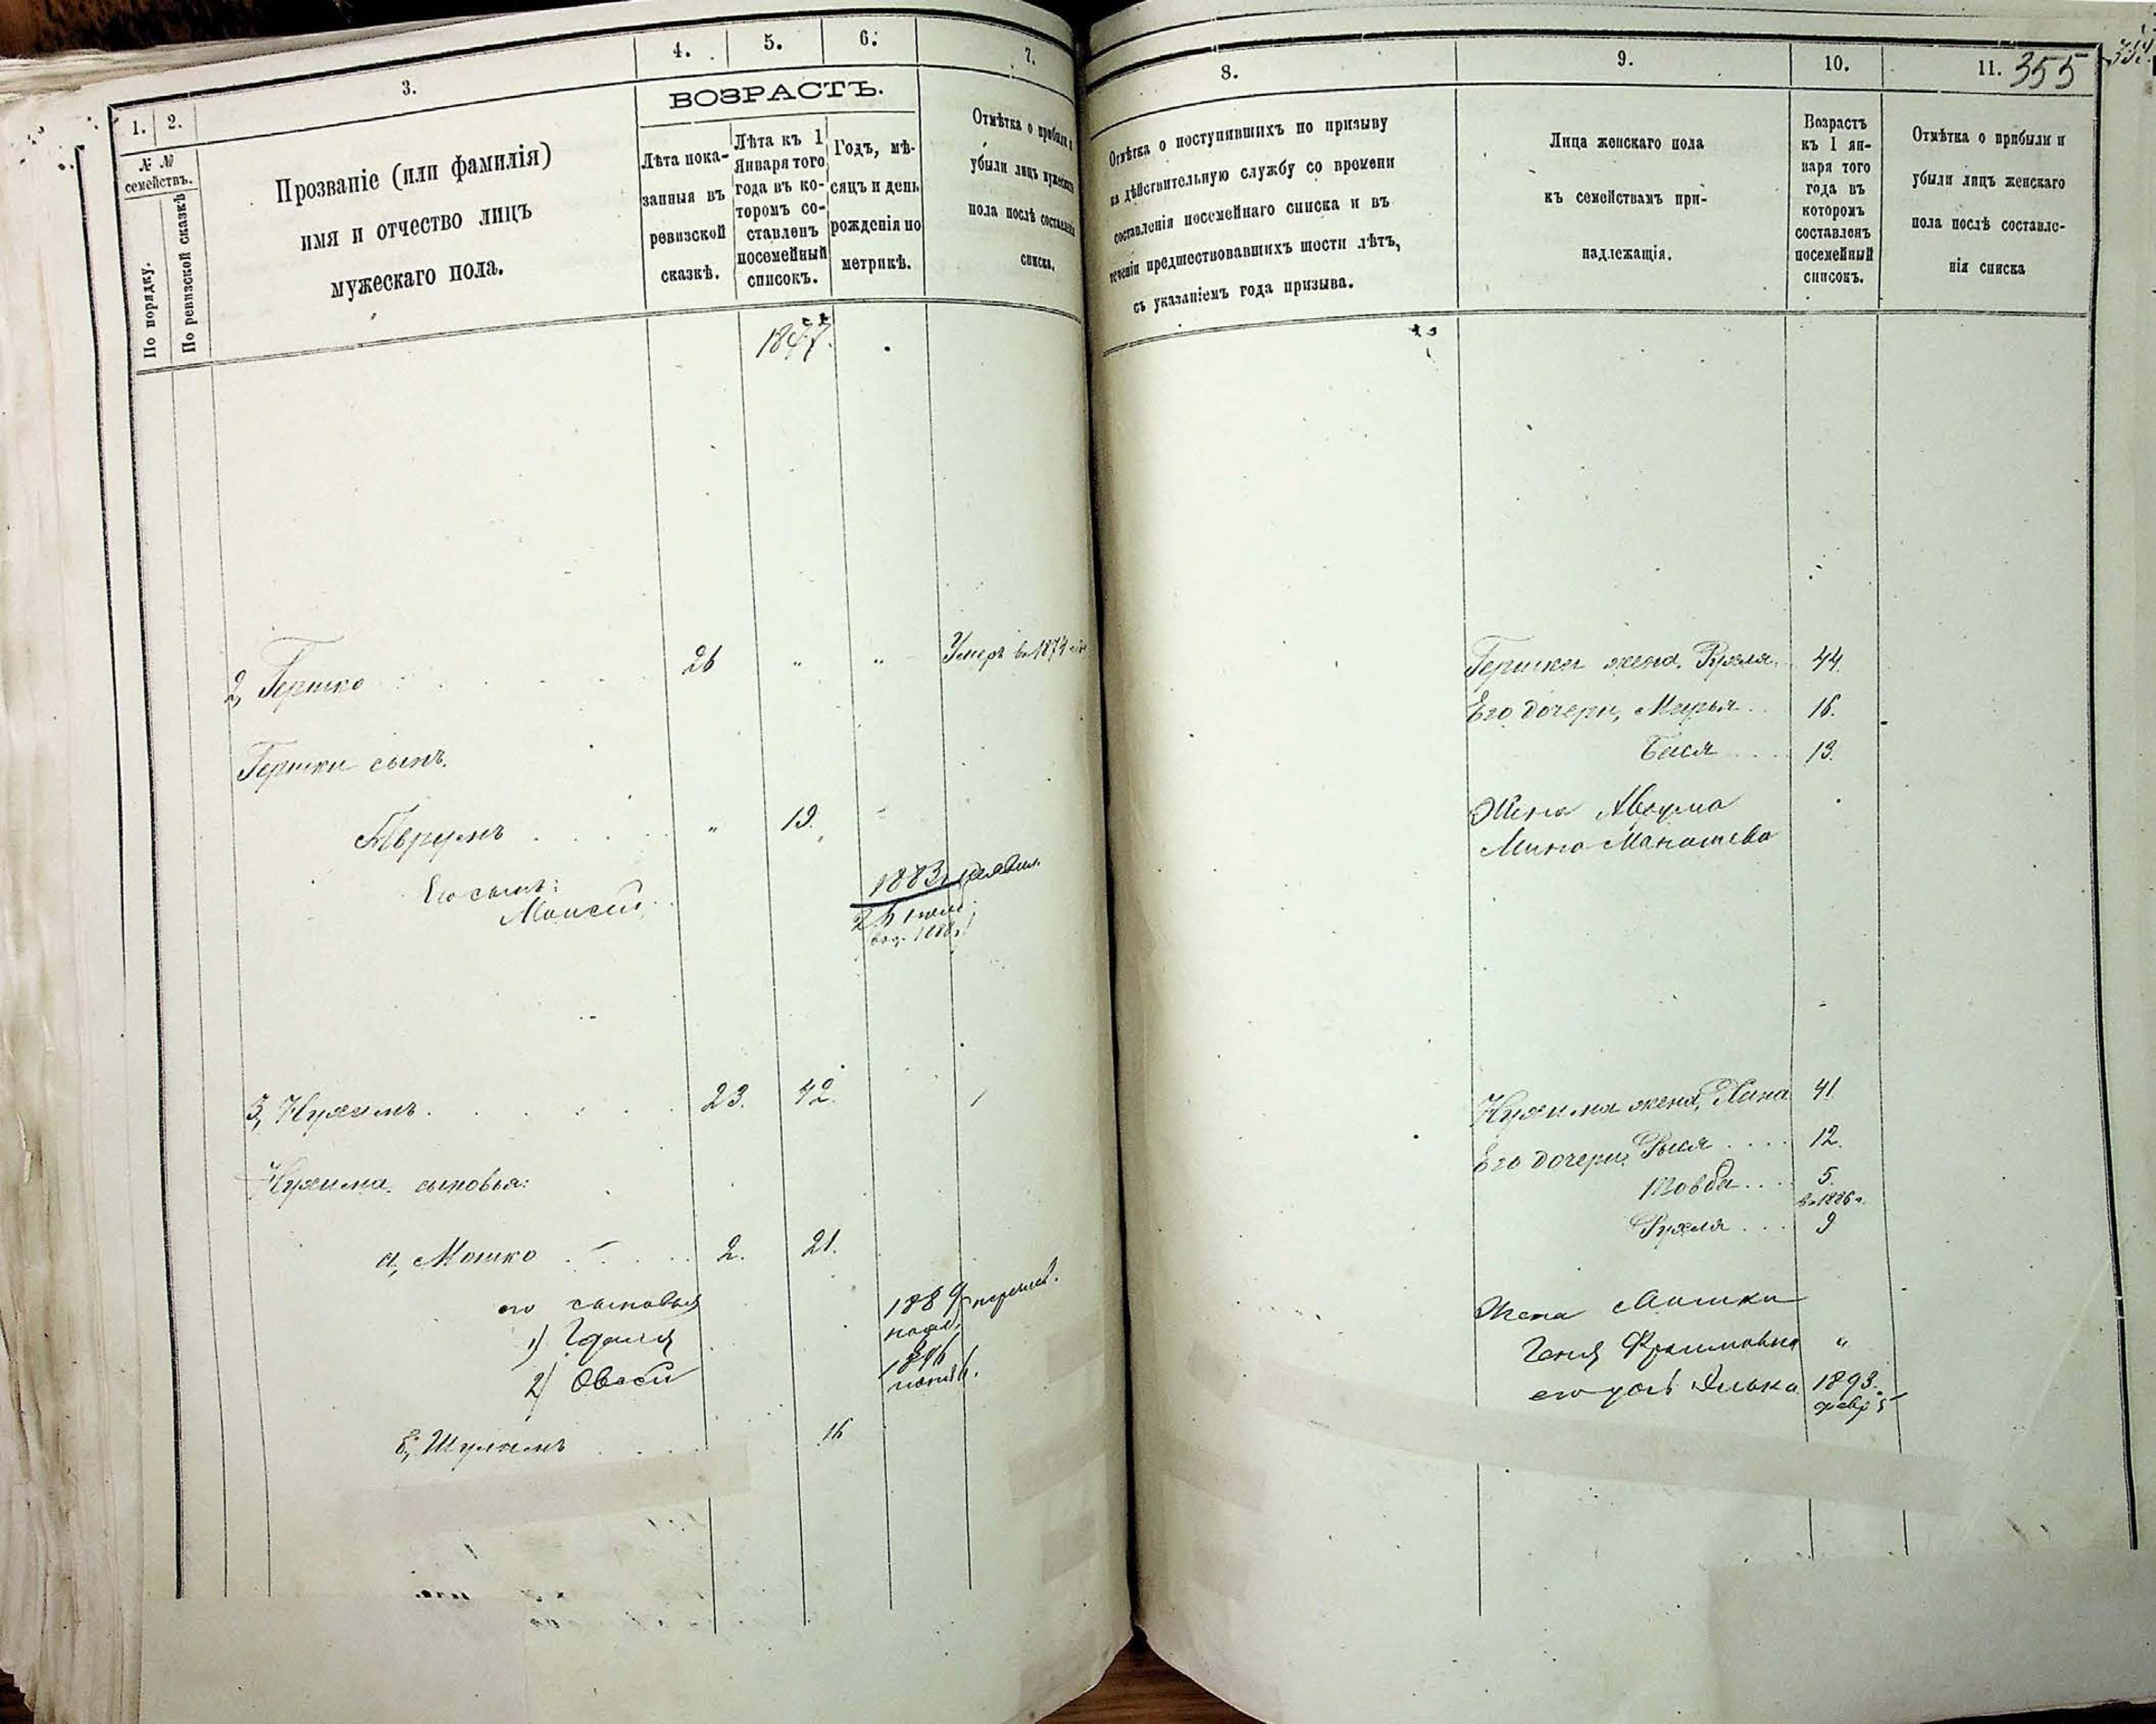 1.
2.
3.
4.
5.
6.
7.
№ №
семействъ.
По порядку.
По ревизской сказкѣ
Прозваніе (или фамилія)
имя и отчество лицъ
мужескаго пола.
ВОЗРАСТЪ.
Лѣта пока-
занныя въ
ревизской
сказкѣ.
Лѣта къ 1
Января того
года въ ко-
торомъ со-
ставленъ
посемейный
списокъ.
Годъ, мѣ-
сяцъ и день
рожденія по
метрикѣ.
Отмѣтка о прибыли и
убыли лицъ мужескаго
пола послѣ составленія
списка.
1877.
2, Гершко 26 " " Умеръ въ 1874
Гершки сынъ.
Аврумъ " 19.
Его сынъ:
Моисей
1883
3, Нухимъ. 23. 42.
Нухима сыновья:
а, Мошко 2. 21.
его сыновья 1889
1) Гдаля
2) Овсей 1896
б, Шулимъ 16
8.
9.
10.
11. 355
Отмѣтка о поступившихъ по призыву
на дѣйствительную службу со времени
составленія посемейнаго списка и въ
теченіи предшествовавшихъ шести лѣтъ,
съ указаніемъ года призыва.
Лица женскаго пола
къ семействамъ при-
надлежащія.
Возрастъ
къ 1 ян-
варя того
года въ
которомъ
составленъ
посемейный
списокъ.
Отмѣтка о прибыли и
убыли лицъ женскаго
пола послѣ составле-
нія списка
Гершки жена, Рухля. 44.
Его дочери, Марья 16.
Бася 13.
Жена Аврума
Мина Манашева
Нухима жена, 41
Его дочери, 12.
Товба 5.
въ 1886 г.
Рухля 9
Жена Мошки
Геня "
его дочь 1893.
февр 5